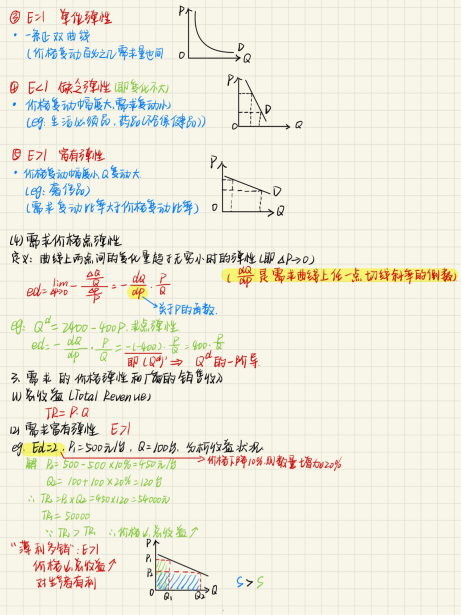 ③ E=1 单位弹性
P
D
O Q
• 一条正双曲线
(价格变动百分之几需求量也同
④ E<1 缺乏弹性 (即变化不大)
P
D
O Q
• 价格变动幅度大,需求变动小
(eg: 生活必须品,药品(不含保健品))
⑤ E>1 富有弹性
P
D
O Q
• 价格变动幅度小,Q变动大
(eg: 奢侈品)
(需求变动比率大于价格变动比率)
(4) 需求价格点弹性
定义: 曲线上两点间的变化量趋于无穷小时的弹性 (即 ΔP→0)
ed = lim ΔP→0 - (ΔQ/Q)/(ΔP/P) = - dQ/dP · P/Q
(dQ/dP 是需求曲线上任一点切线斜率的倒数)
关于P的函数
eg: Qᵈ = 2400 - 400P 求点弹性
ed = - dQ/dP · P/Q = -(-400) · P/Q = 400 · P/Q
即 (Qᵈ)' ⇒ Qᵈ的一阶导
3. 需求的价格弹性和厂商的销售收入
(1) 总收益 (Total Revenue)
TR = P·Q
(2) 需求富有弹性 E>1
eg. Ed=2, P₁=500元/台, Q=100台, 分析收益状况
价格下降10%,则数量增加20%
解 P₂ = 500 - 500×10% = 450元/台
Q₂ = 100 + 100×20% = 120台
∴ TR₂ = P₂×Q₂ = 450×120 = 54000元
TR₁ = 50000
∵ TR₂ > TR₁ ∴ 价格↓,总收益↑
"薄利多销": E>1
价格↓,总收益↑
对生产者有利
P
P₁
P₂
O Q₁ Q₂ Q
S > S